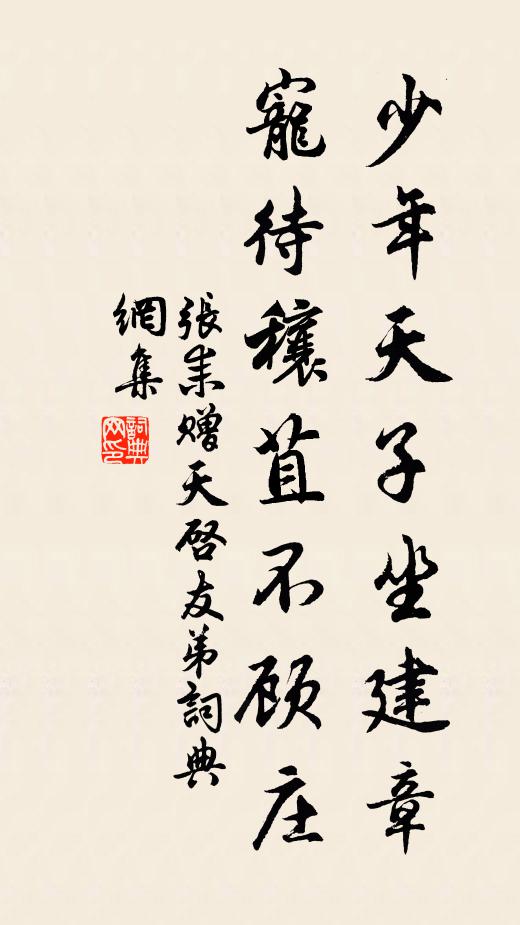 少年天子坐建章
寵待穰苴不顾庄
張耒赠天启友弟詞典
網集
詞典
网印